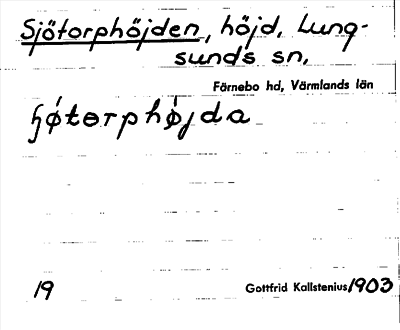 Sjötorphöjden, höjd, Lung-
sunds sn,
Färnebo hd, Värmlands län
ɧǿtɵrphǿjda
19 Gottfrid Kallstenius 1903